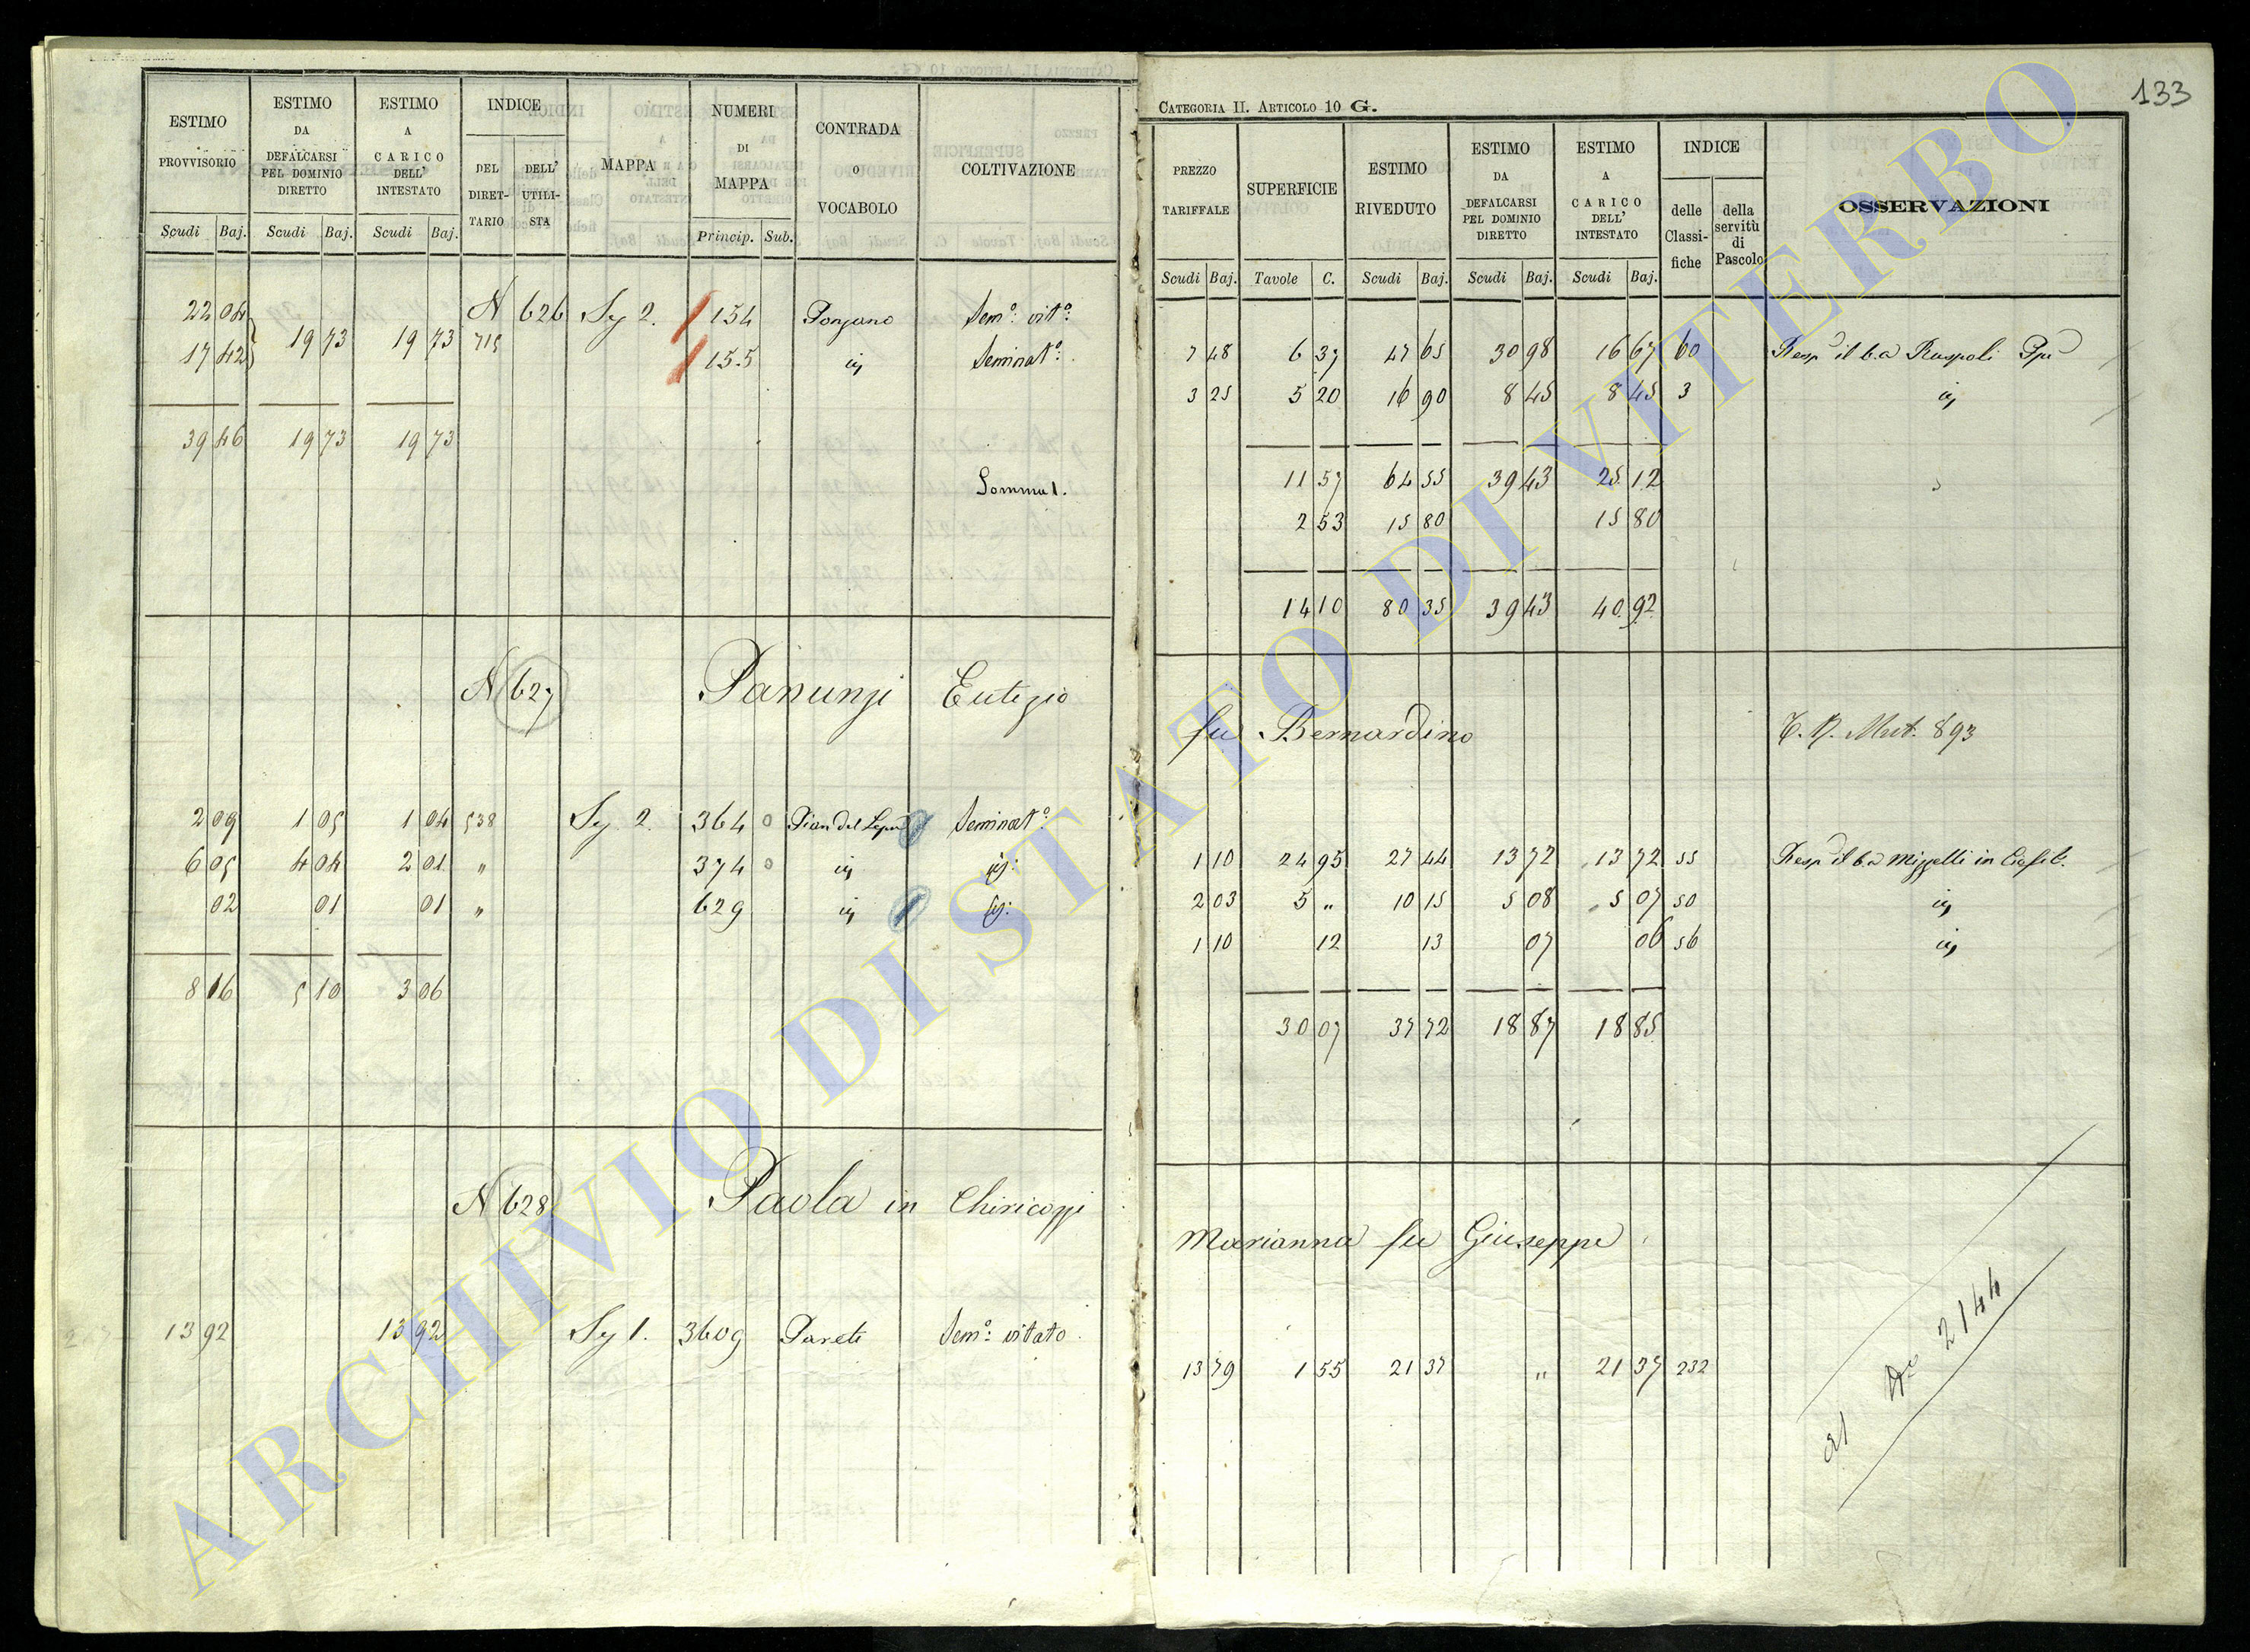 133
CATEGORIA II. ARTICOLO 10 G.
ESTIMO PROVVISORIO | ESTIMO DA DEFALCARSI PEL DOMINIO DIRETTO | ESTIMO A CARICO DELL' INTESTATO | INDICE | MAPPA | NUMERI DI MAPPA | CONTRADA o VOCABOLO | COLTIVAZIONE
DEL DIRET-TARIO | DELL' UTILI-STA
Scudi Baj. | Scudi Baj. | Scudi Baj. | Princip. Sub.
22 04 | 19 73 | 19 73 | N 626 | Sz 2. | 154 | Ponzano | Sem°: vit°:
17 42 | 715 | 155 | id | Seminat°:
39 46 | 19 73 | 19 73
Somma 1.
N 627 Panunzi Eutizio
2 09 | 1 05 | 1 04 | 538 | Sz 2. | 364 | Pian del Lepre | Seminat°:
6 05 | 4 04 | 2 01 | " | 374 | id | id:
02 | 01 | 01 | " | 629 | id | id:
8 16 | 5 10 | 3 06
N 628 Paola in Chiricozzi
13 92 | 13 92 | Sz 1. | 3609 | Pareti | Sem°: vitato
PREZZO TARIFFALE | SUPERFICIE | ESTIMO RIVEDUTO | ESTIMO DA DEFALCARSI PEL DOMINIO DIRETTO | ESTIMO A CARICO DELL' INTESTATO | INDICE | OSSERVAZIONI
delle Classi-fiche | della servitù di Pascolo
Scudi Baj. | Tavole C. | Scudi Baj. | Scudi Baj. | Scudi Baj.
7 48 | 6 37 | 47 65 | 30 98 | 16 67 | 60 | Resp il 6.a Ruspoli Ppe
3 25 | 5 20 | 16 90 | 8 45 | 8 45 | 3 | id
11 57 | 64 55 | 39 43 | 25 12
2 53 | 15 80 | 15 80
14 10 | 80 35 | 39 43 | 40 92
fu Bernardino
Mut. 893
1 10 | 24 95 | 27 44 | 13 72 | 13 72 | 55 | Resp il 6.a Mizzelli in
2 03 | 5 " | 10 15 | 5 08 | 5 07 | 50 | id
1 10 | 12 | 13 | 07 | 06 | 56 | id
30 07 | 37 72 | 18 87 | 18 85
Marianna fu Giuseppe
13 79 | 1 55 | 21 37 | " | 21 37 | 232
al No 2144
ARCHIVIO DI STATO DI VITERBO